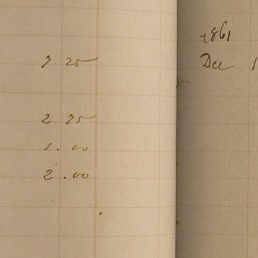 2 25
2 25
1.00
2.00
1861
Dec 1